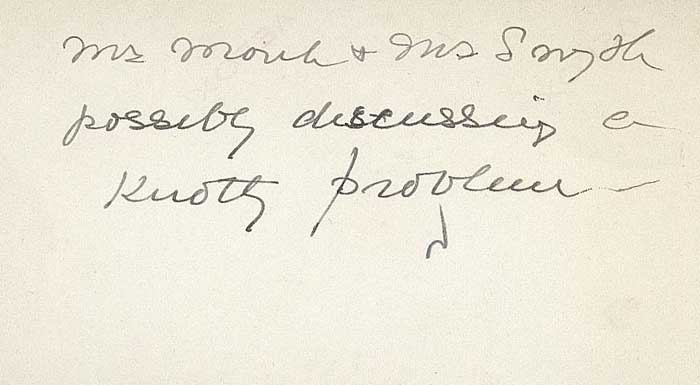 Mr Monk & Mr Smyth
possibly discussing a
Knotty problem